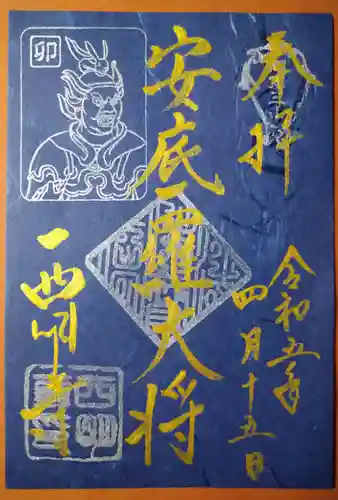 奉拝
令和五年
四月十五日
安底羅大将
西明寺
卯
西明